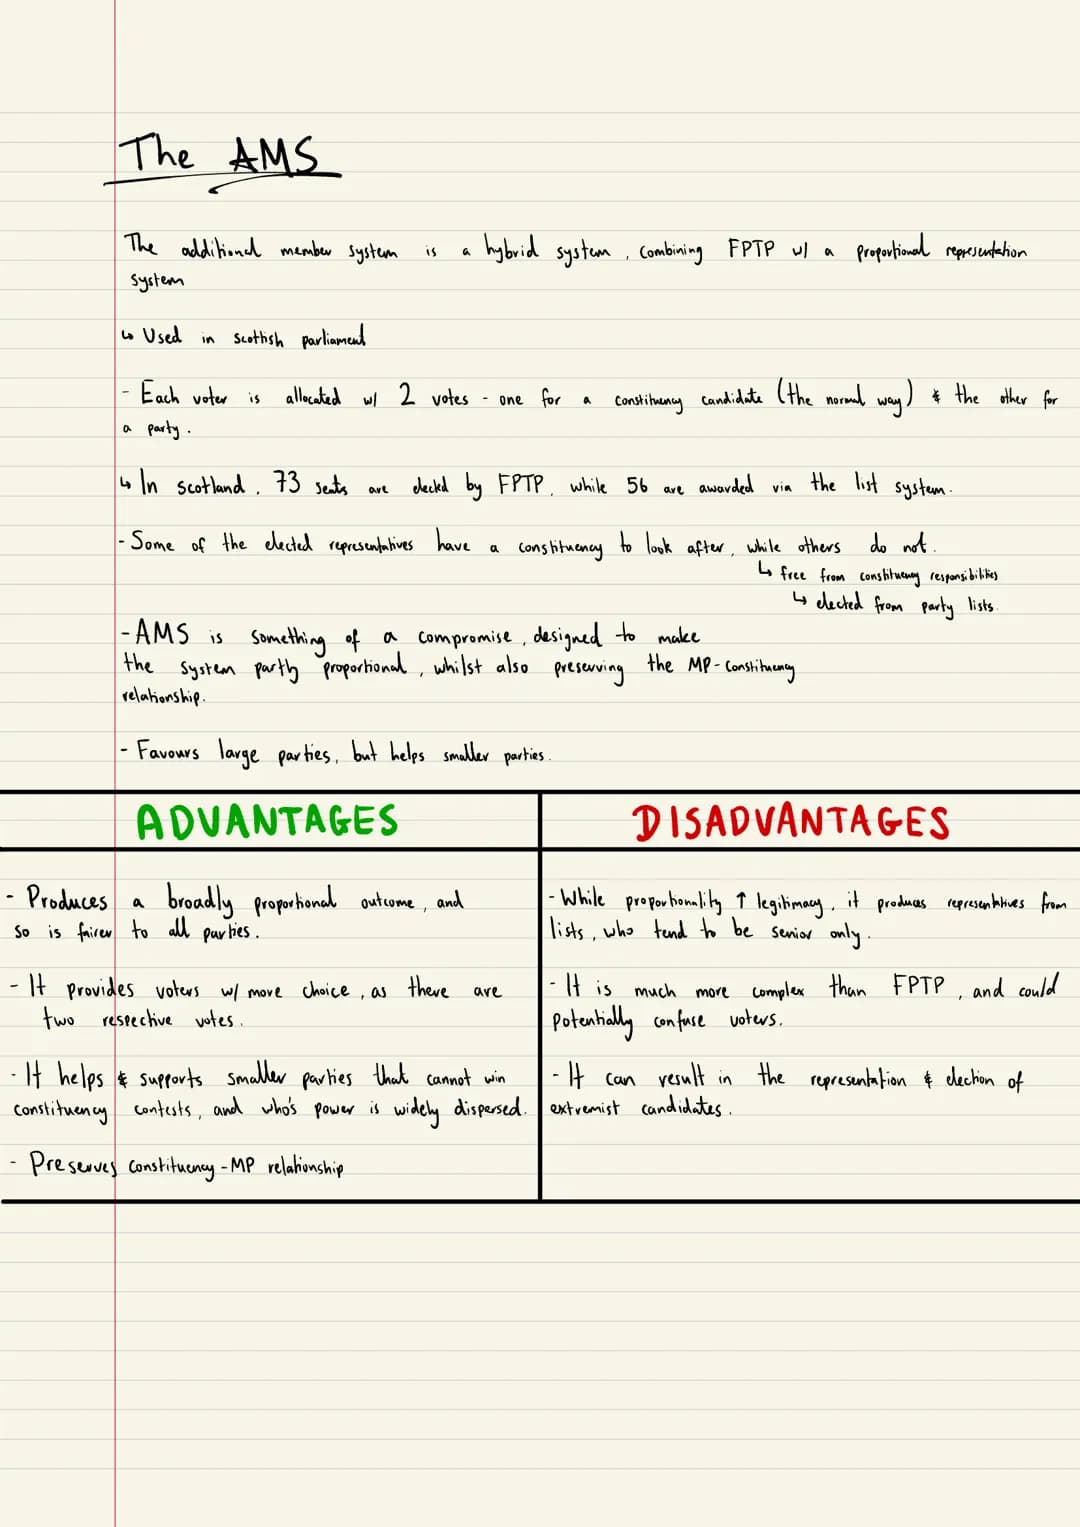 The AMS
The additional member system is a hybrid system, combining FPTP w/ a proportional representation
system
↳ Used in scottish parliament
- Each voter is allocated w/ 2 votes - one for a constituency candidate (the normal way) & the other for
a party.
↳ In scotland, 73 seats are elected by FPTP, while 56 are awarded via the list system.
- Some of the elected representatives have a constituency to look after, while others do not.
↳ free from constituency responsibilities
↳ elected from party lists.
- AMS is something of a compromise, designed to make
the system partly proportional, whilst also preserving the MP-Constituency
relationship.
- Favours large parties, but helps smaller parties.
ADVANTAGES
- Produces a broadly proportional outcome, and
so is fairer to all parties.
- It provides voters w/ more choice, as there are
two respective votes.
- It helps & supports smaller parties that cannot win
constituency contests, and who's power is widely dispersed.
- Preserves constituency-MP relationship
DISADVANTAGES
- While proportionality ↑ legitimacy, it produces representatives from
lists, who tend to be senior only.
- It is much more complex than FPTP, and could
potentially confuse voters.
- It can result in the representation & election of
extremist candidates.